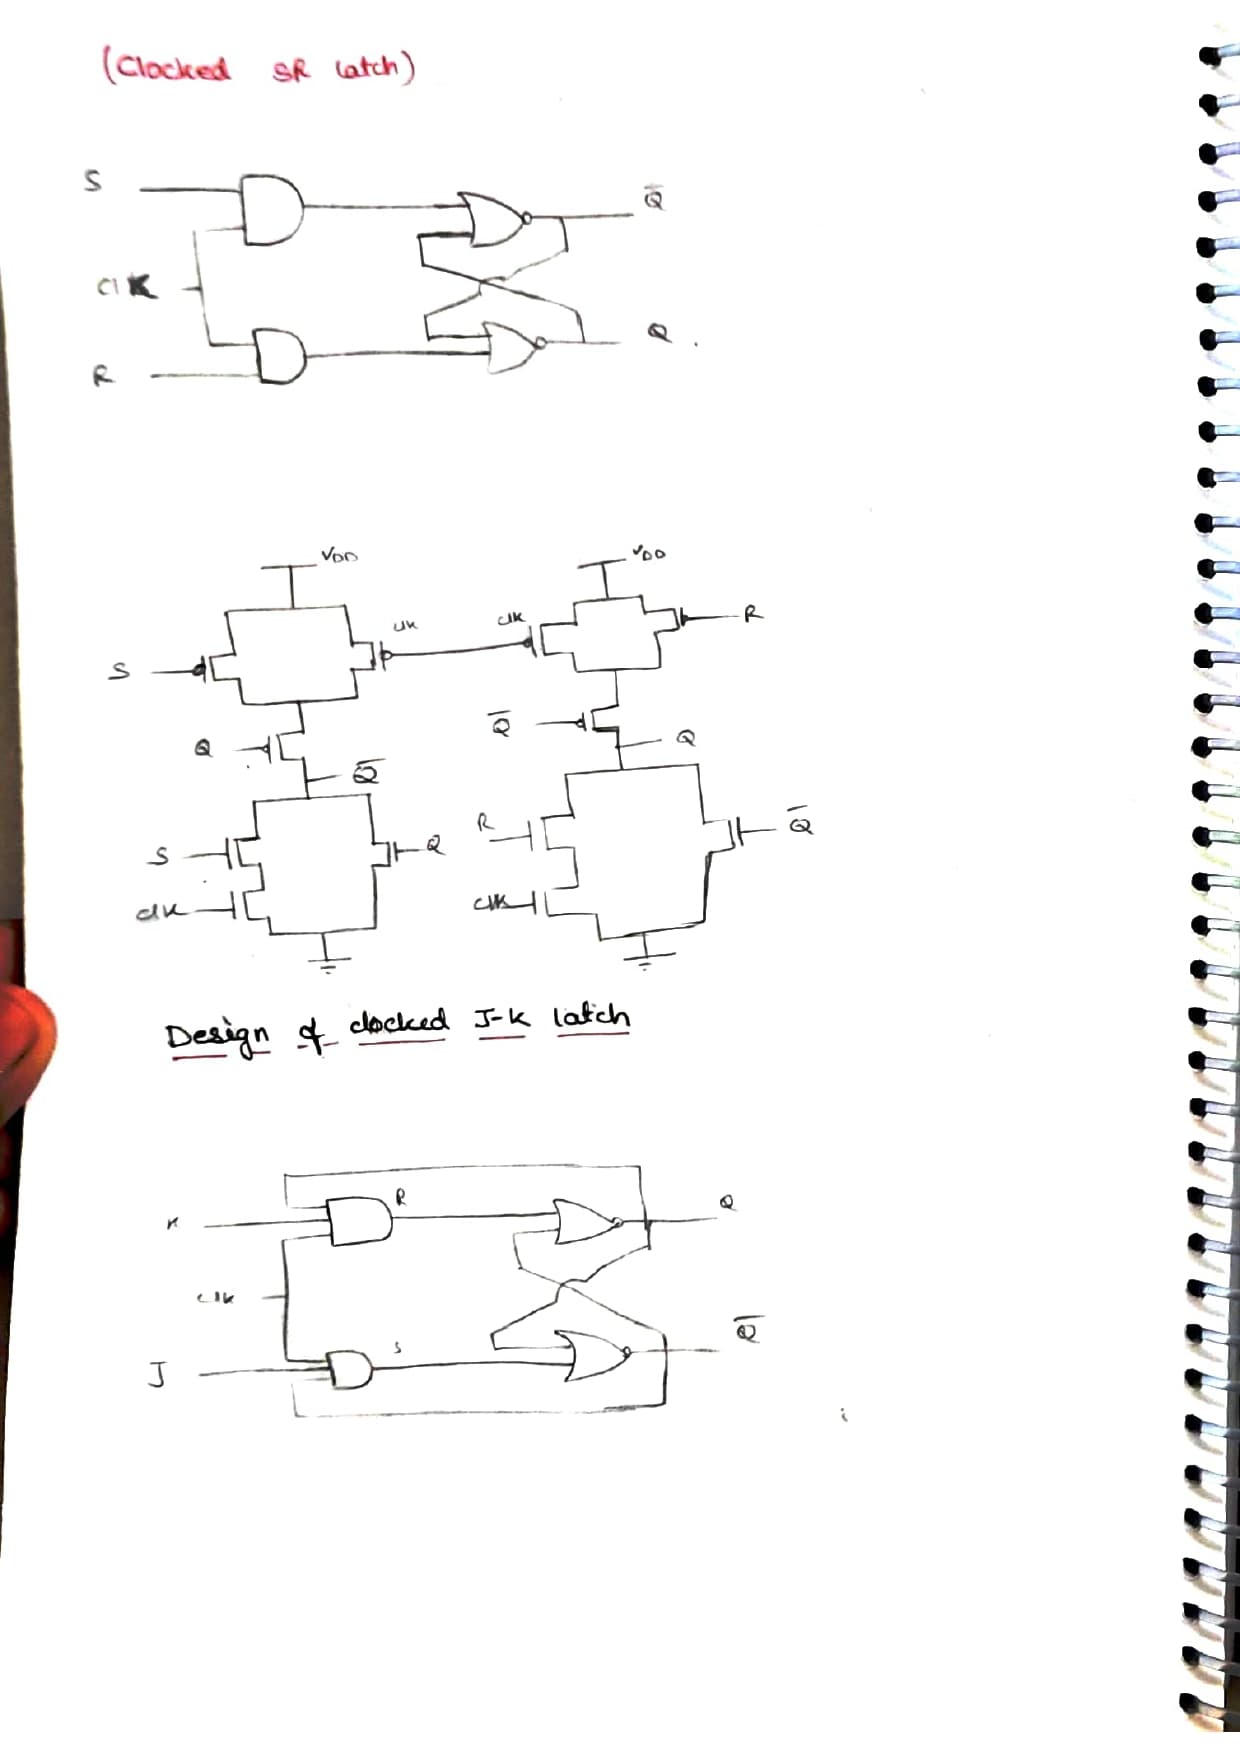 (Clocked SR latch)
S
Q̅
ClK
Q.
R
VDD
VDD
clk
clk
R
S
Q̅
Q
Q
Q̅
R
Q̅
S
Q
clk
clk
Design of clocked J-K latch
R
Q
K
clk
Q̅
S
J